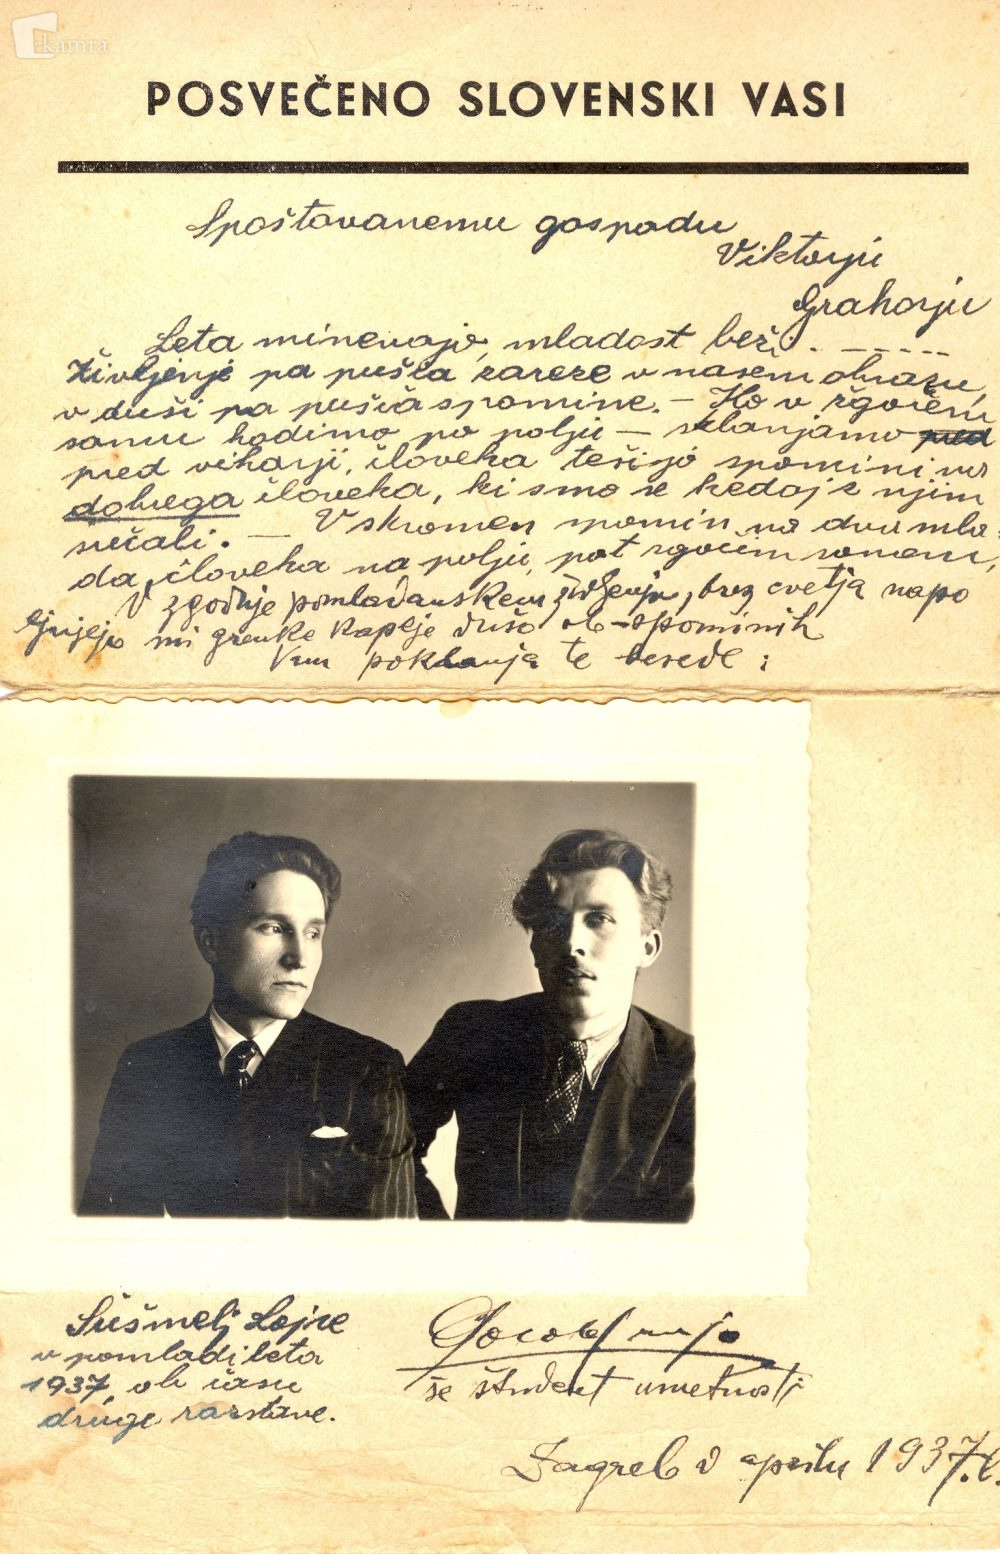 kamra
POSVEČENO SLOVENSKI VASI
Spoštovanemu gospodu
Viktorju
Grahorju
Leta minevajo, mladost beži. – – – – –
Življenje pa pušča zareze v našem obrazu,
v duši pa pušča spomine. – Ko v žgočem
samu hodimo po polju – sklanjamo pred
pred viharji, človeka tešijo spomini na
dobrega človeka, ki smo se kedaj z njim
sečali. – V skromen spomin na dva mla-
da človeka na polju, pot zgočim soncem,
V zgodnje pomladanskem življenju, brez cvetja napo
ljujejo mi grenke kaplje dušo ob spominih
Vam poklanja te besede:
Šušmelj Lojze
v pomladi leta
1937, ob času
druge razstave.
še študent umetnosti
Zagreb v aprilu 1937.